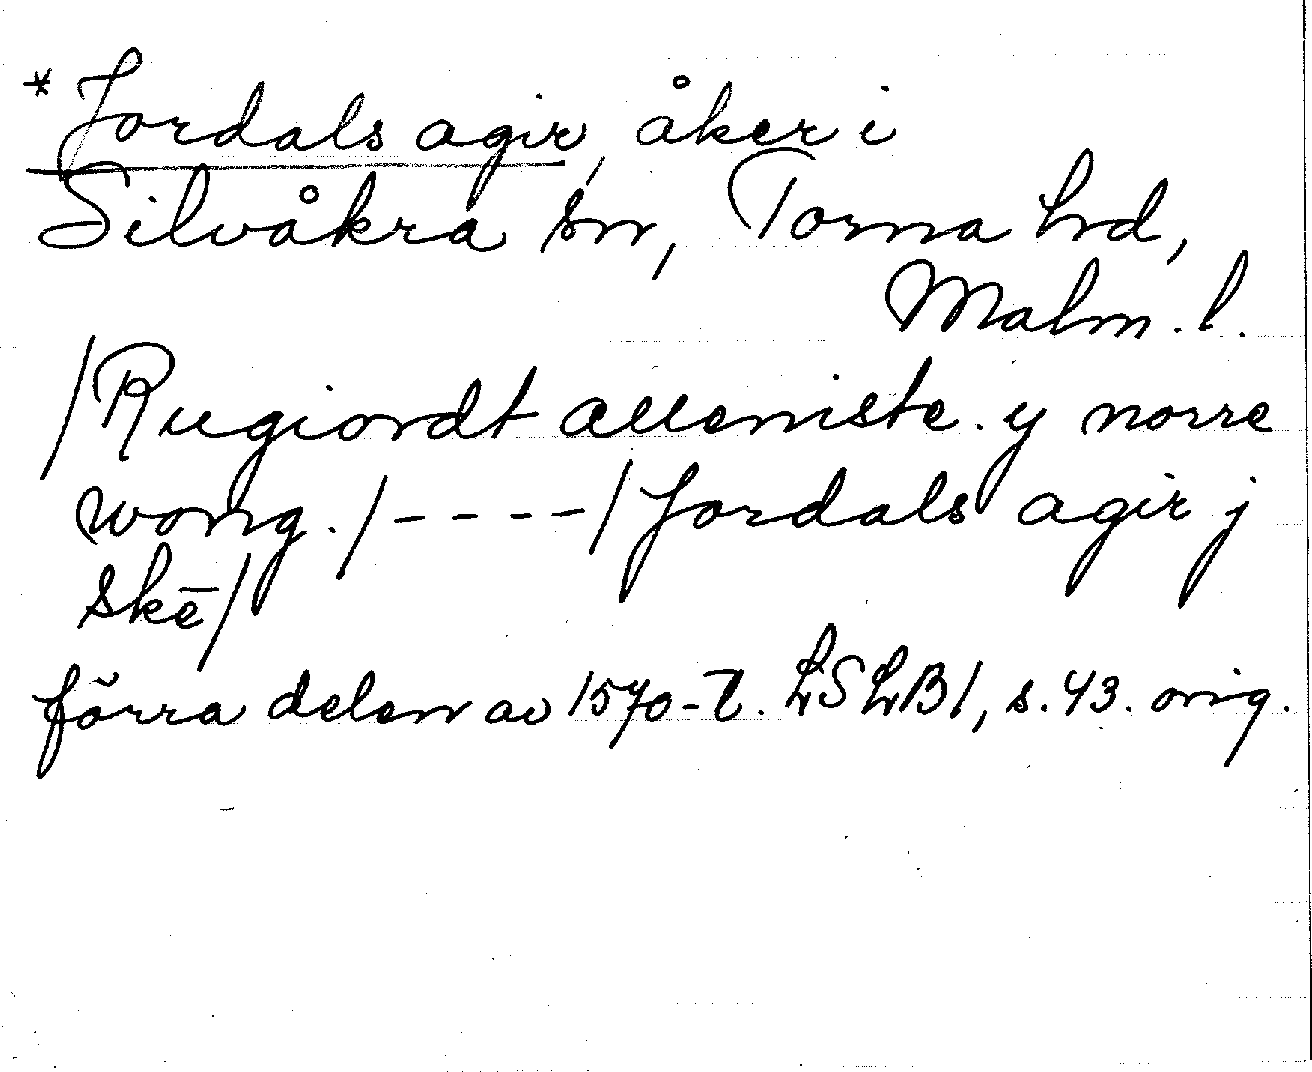 * Jordals agir, åker i
Silvåkra sn, Torna hrd,
Malm. l.
/Rugiordt alleniste. y norre
wong./----/Jordals agir j
skē/
förra delen av 1570-t. LSLB1, s. 43. orig.